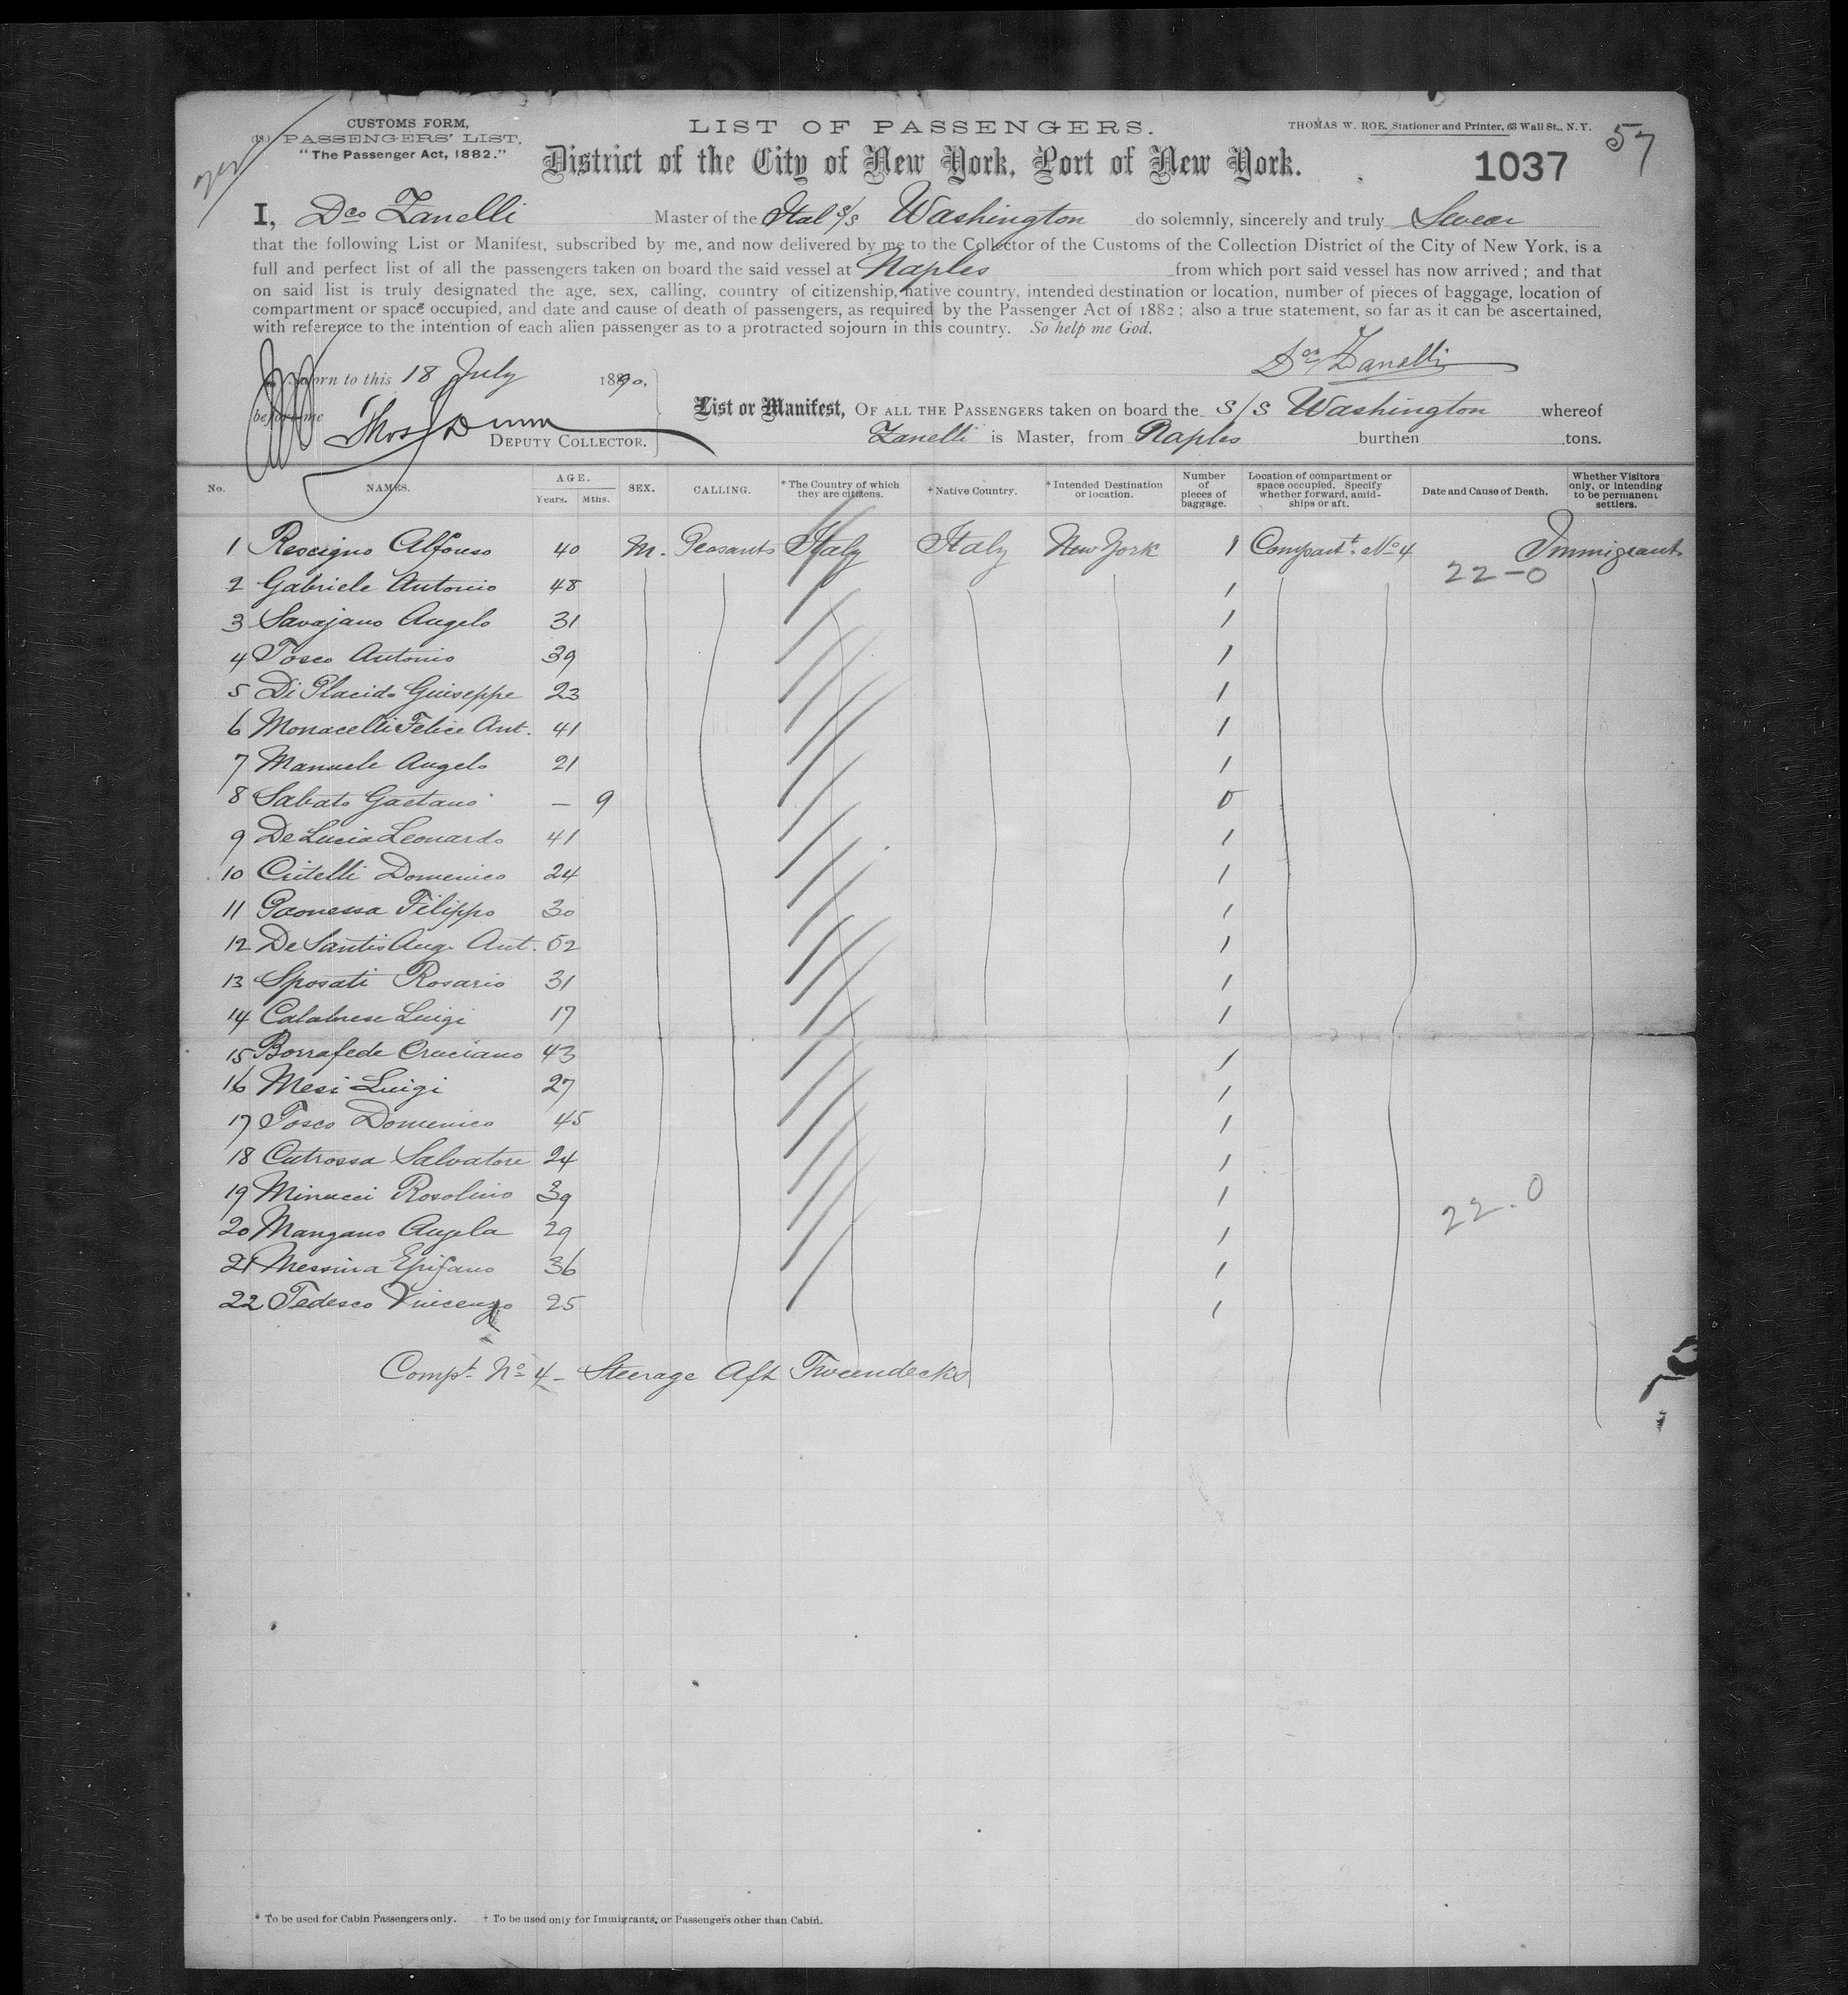 CUSTOMS FORM,
(18.) PASSENGERS' LIST,
"The Passenger Act, 1882."
LIST OF PASSENGERS.
THOMAS W. ROE, Stationer and Printer, 63 Wall St., N. Y.
57
District of the City of New York, Port of New York.
1037
I, Dco Zanelli Master of the Ital s/s Washington do solemnly, sincerely and truly Swear
that the following List or Manifest, subscribed by me, and now delivered by me to the Collector of the Customs of the Collection District of the City of New York, is a
full and perfect list of all the passengers taken on board the said vessel at Naples from which port said vessel has now arrived; and that
on said list is truly designated the age, sex, calling, country of citizenship, native country, intended destination or location, number of pieces of baggage, location of
compartment or space occupied, and date and cause of death of passengers, as required by the Passenger Act of 1882; also a true statement, so far as it can be ascertained,
with reference to the intention of each alien passenger as to a protracted sojourn in this country. So help me God.
Dco Zanelli
Sworn to this 18 July 1890,
before me Thos J Dunn
DEPUTY COLLECTOR.
List or Manifest, OF ALL THE PASSENGERS taken on board the s/s Washington whereof
Zanelli is Master, from Naples burthen tons.
No. NAMES. AGE. Years. Mths. SEX. CALLING. * The Country of which they are citizens. + Native Country. * Intended Destination or location. Number of pieces of baggage. Location of compartment or space occupied. Specify whether forward, amidships or aft. Date and Cause of Death. Whether Visitors only, or intending to be permanent settlers.
1 Rescigno Alfonso 40 M. Peasants Italy Italy New York 1 Compart t. No 4 Immigrants
22-0
2 Gabriele Antonio 48 1
3 Savajano Angelo 31 1
4 Tosco Antonio 39 1
5 Di Placido Guiseppe 23 1
6 Monacelli Felice Ant. 41 1
7 Manuele Angelo 21 1
8 Sabato Gaetano — 9 0
9 De Lucia Leonardo 41 1
10 Critelli Domenico 24 1
11 Paonessa Filippo 30 1
12 De Santis Aug. Ant. 52 1
13 Sposati Rosario 31 1
14 Calabrese Luigi 17 1
15 Borrafede Cruciano 43 1
16 Mesi Luigi 27 1
17 Tosco Domenico 45 1
18 Cutrossa Salvatore 24 1
19 Minucci Rosolino 39 1
22.0
20 Mangano Angela 29 1
21 Messina Epifano 36 1
22 Tedesco Vincenzo 25 1
Compt. No 4 - Steerage Aft Tweendecks
* To be used for Cabin Passengers only. + To be used only for Immigrants, or Passengers other than Cabin.